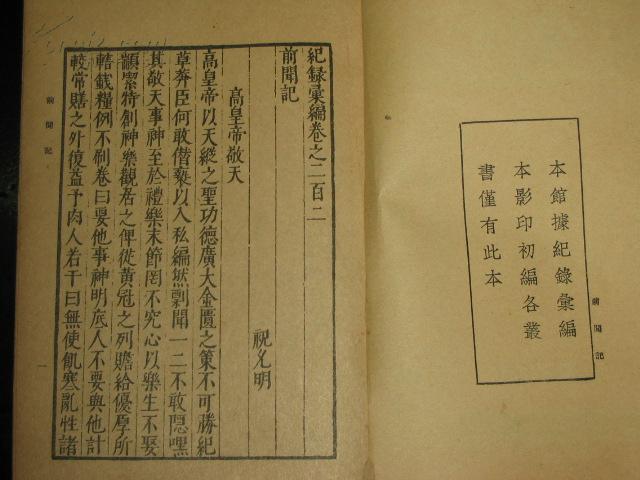 本館據紀錄彙編
本影印初編各叢
書僅有此本
前聞記
紀録彙編卷之二百二
前聞記
祝允明
高皇帝敬天
高皇帝以天縱之聖功德廣大金匱之策不可勝紀
草莽臣何敢僭褻以入私編然剽聞一二不敢隠嘿
其敬天事神至於禮樂末節罔不究心以樂生不娶
顓潔特創神樂觀居之俾從黄冠之列贍給優厚所
轄載糧例不刷卷曰要他事神明底人不要與他計
較常膳之外復益予肉人若干曰無使飢寒亂性諸
前聞記
一